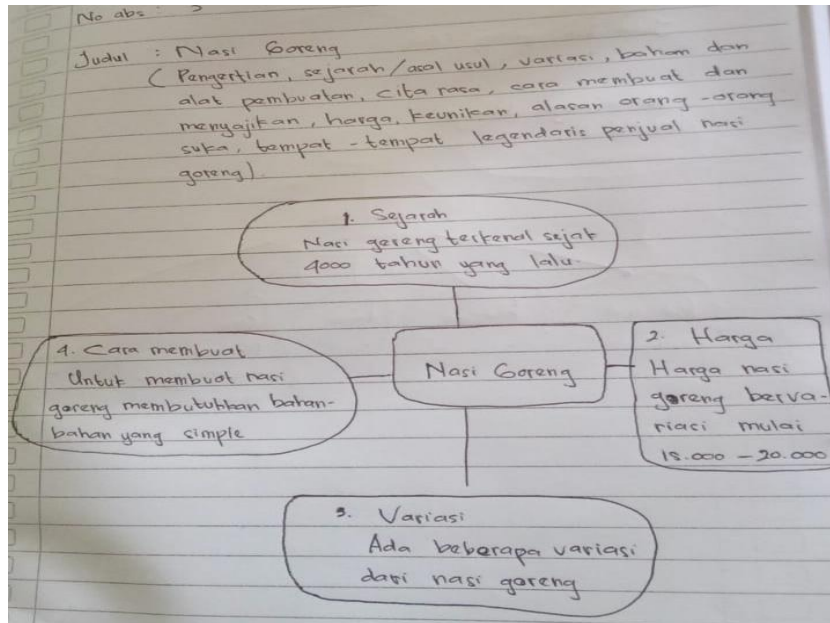 No abs :
Judul : Nasi Goreng
( Pengertian, sejarah/asal usul, variasi, bahan dan
alat pembuatan, cita rasa, cara membuat dan
menyajikan, harga, keunikan, alasan orang-orang
suka, tempat-tempat legendaris penjual nasi
goreng).
1. Sejarah
Nasi goreng terkenal sejak
4000 tahun yang lalu.
4. Cara membuat
Untuk membuat nasi
goreng membutuhkan bahan-
bahan yang simple
Nasi Goreng
2. Harga
Harga nasi
goreng berva-
riasi mulai
15.000 - 20.000
3. Variasi
Ada beberapa variasi
dari nasi goreng